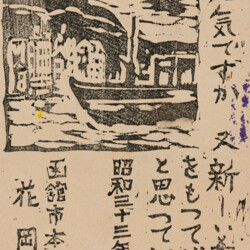 気ですか 又
新しい
をもって
と思って
昭和三十三年
函館市本
花岡